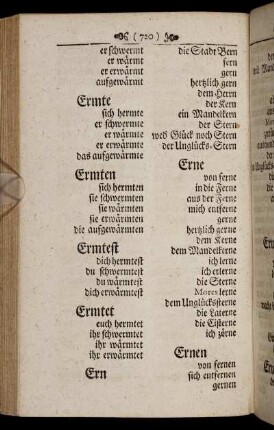 ( 720 )
er schwermt
er wärmt
er erwärmt
aufgewärmt
Ermte
sich hermte
er schwermte
er wärmte
er erwärmte
das aufgewärmte
Ermten
sich hermten
sie schwermten
sie wärmten
sie erwärmten
die aufgewärmten
Ermtest
dich hermtest
du schwermtest
du wärmtest
dich erwärmtest
Ermtet
euch hermtet
ihr schwermtet
ihr wärmtet
ihr erwärmtet
Ern
die Stadt Bern
fern
gern
hertzlich gern
dem Herrn
der Kern
ein Mandelkern
der Stern
wed Glück noch Stern
der Unglücks-Stern
Erne
von ferne
in die Ferne
aus der Ferne
mich entferne
gerne
hertzlich gerne
dem Kerne
dem Mandelkerne
ich lerne
ich erlerne
die Sterne
Mores lerne
dem Unglückssterne
die Laterne
die Cisterne
ich zörne
Ernen
von fernen
sich entfernen
gernen